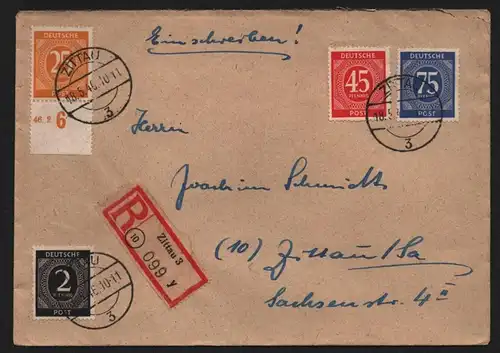 DEUTSCHE
25
ZITTAU
18.5.46.10-11
3
46. 2
6
Einschreiben!
DEUTSCHE
45
PFENNIG
POST
DEUTSCHE
75
PFENNIG
POST
ZITTAU
18.5
3
Herrn
Joachim Schmidt
(10) Zittau/Sa
Sachsenstr. 4 II
R
(10)
Zittau 3
099 y
DEUTSCHE
2
PFENNIG
POST
AU
46.10-11
3